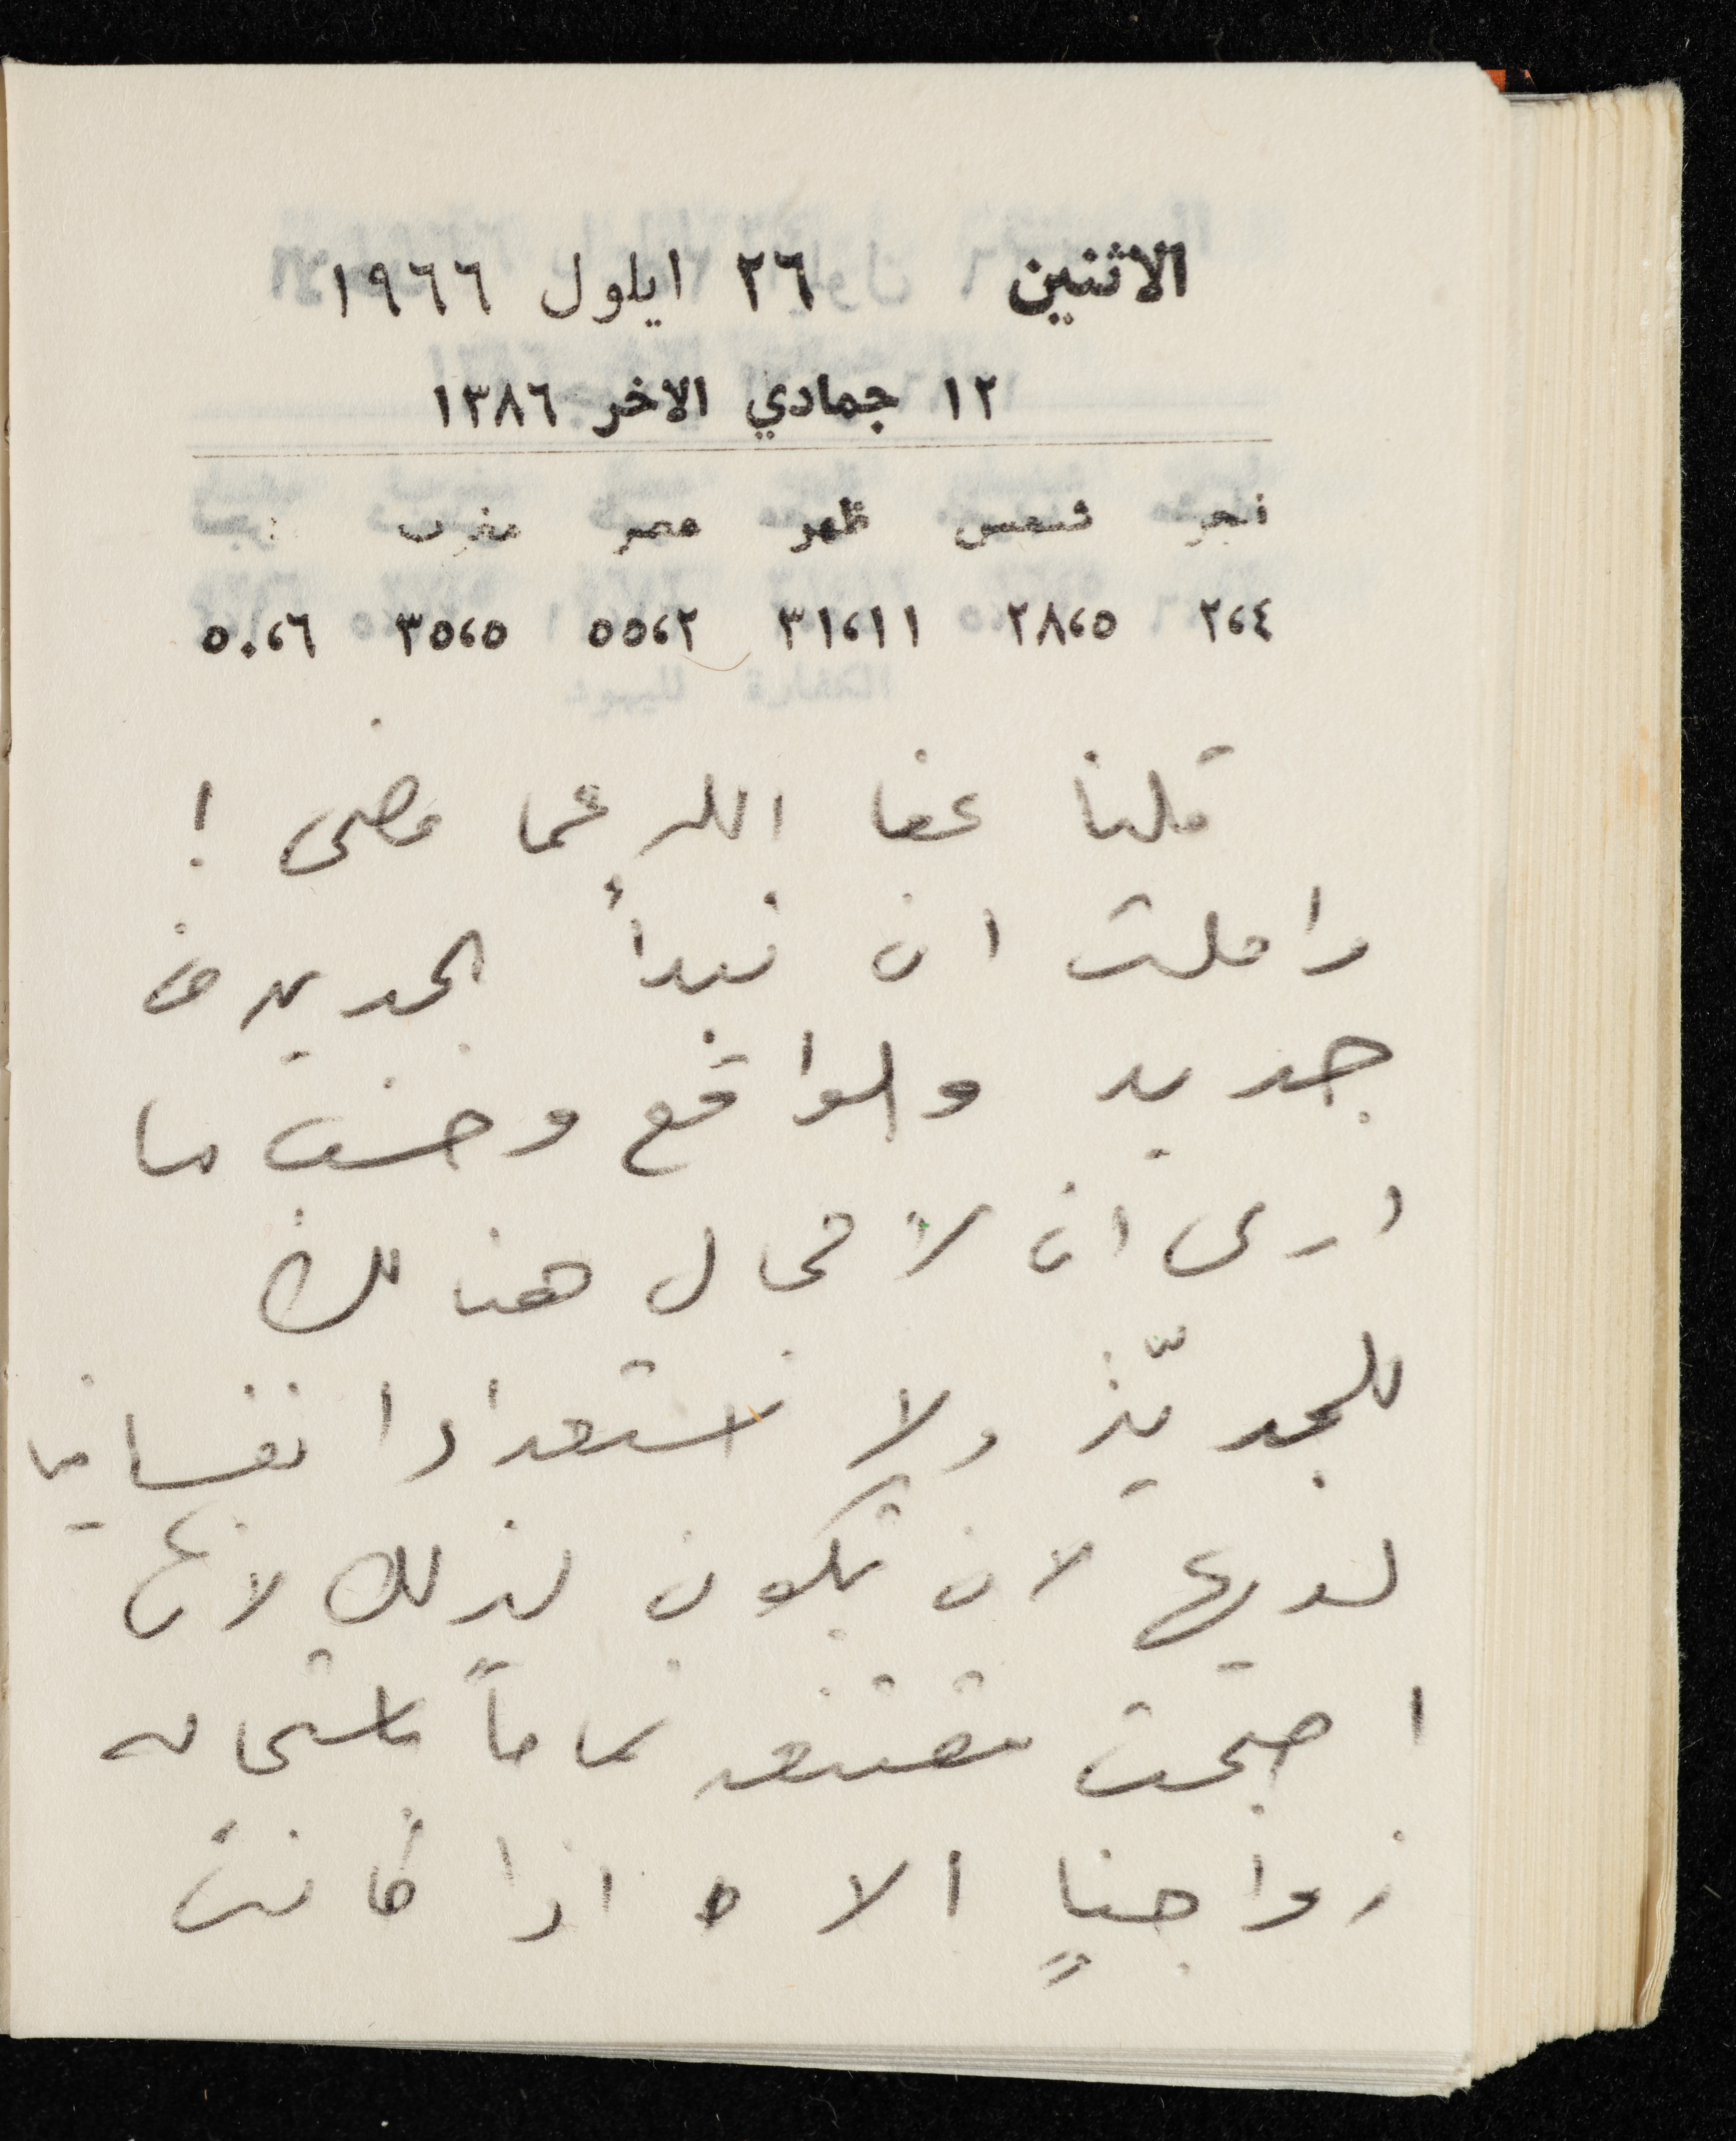 الاثنين ٢٦ ايلول ١٩٦٦
١٢ جمادي الاخر ١٣٨٦
فجر شمس ظهر عصر مغرب
٢،٤ ٢٨،٥ ٣١،١١ ٥٥،٢ ٣٥،٥ ٥٠،٦
قلنا عفا الله عما مضى !
واملت ان نبدأ الجديد من
جديد والواقع وحسب ما
ارى ان لا مجال هنالك
للجديد ولا استعدادا نفسانيا
لديها لان تكون لذلك لانها
اصبحت مقتنعه تماماً باستحاله
زواجنا الا اذا كانت